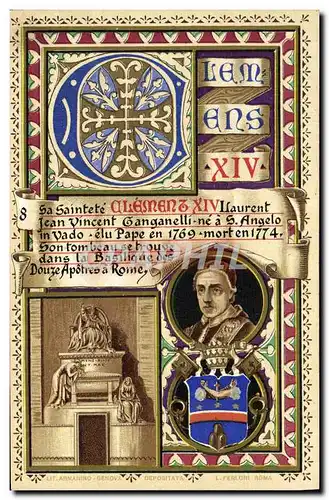 CLEM
ENS
XIV
8 Sa Sainteté CLÉMENT XIV Laurent
Jean Vincent Ganganelli-né à S. Angelo
in Vado · élu Pape en 1769 · mort en 1774.
Son tombeau se trouve
dans la Basilique des
Douze Apôtres à Rome.
LIT. ARMANINO - GENOVA DEPOSITATE L. FERLONI ROMA